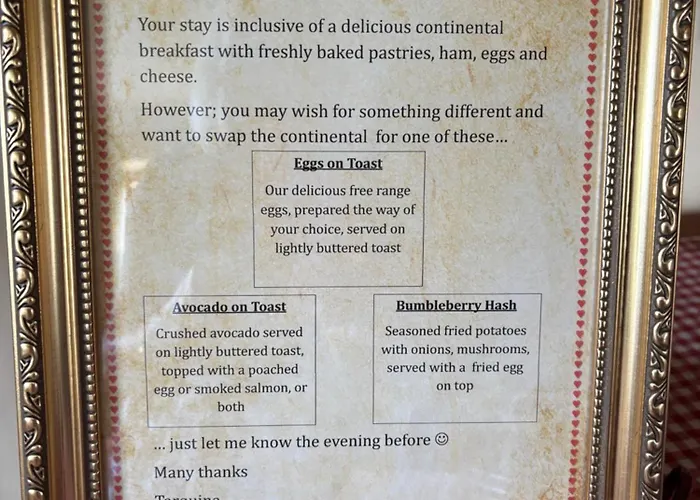 Your stay is inclusive of a delicious continental
breakfast with freshly baked pastries, ham, eggs and
cheese.
However; you may wish for something different and
want to swap the continental for one of these...
Eggs on Toast
Our delicious free range
eggs, prepared the way of
your choice, served on
lightly buttered toast
Avocado on Toast
Crushed avocado served
on lightly buttered toast,
topped with a poached
egg or smoked salmon, or
both
Bumbleberry Hash
Seasoned fried potatoes
with onions, mushrooms,
served with a fried egg
on top
... just let me know the evening before ☺
Many thanks